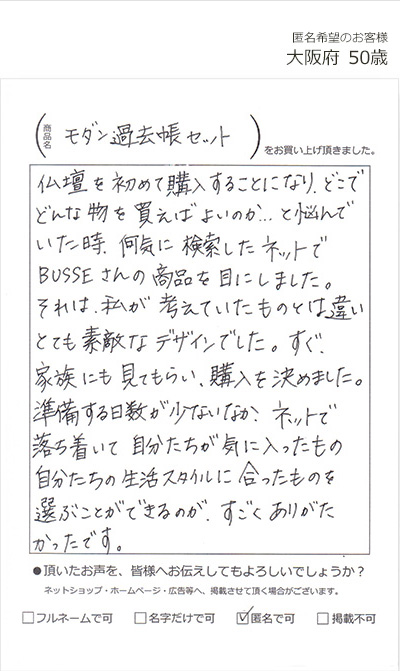 匿名希望のお客様
大阪府 50歳
商品名 (モダン過去帳セット) をお買い上げ頂きました。
仏壇を初めて購入することになり、どこで
どんな物を買えばよいのか…と悩んで
いた時、何気に検索したネットで
BUSSEさんの商品を目にしました。
それは、私が考えていたものとは違い
とても素敵なデザインでした。すぐ、
家族にも見てもらい、購入を決めました。
準備する日数が少ないなか、ネットで
落ち着いて自分たちが気に入ったもの
自分たちの生活スタイルに合ったものを
選ぶことができるのが、すごくありがた
かったです。
●頂いたお声を、皆様へお伝えしてもよろしいでしょうか？
ネットショップ・ホームページ・広告等へ、掲載させて頂く場合がございます。
□フルネームで可 □名字だけで可 ☑匿名で可 □掲載不可